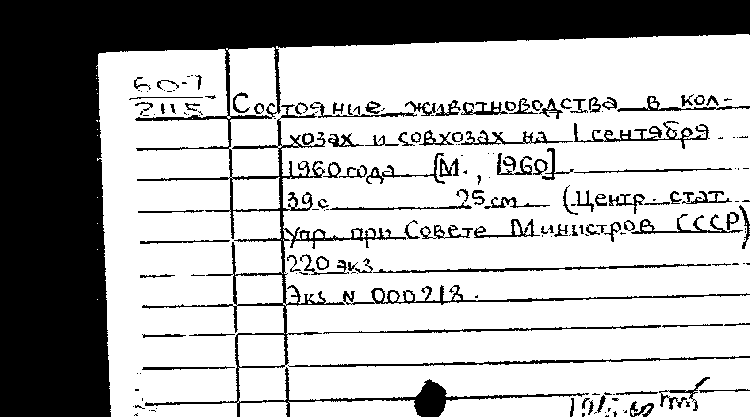 60-7
2115
Состояние животноводства в кол-
хозах и совхозах на 1 сентября
1960 года [М., 1960].
39 с 25 см. (Центр. стат.
упр. при Совете Министров СССР)
220 экз.
Экз N 000218.